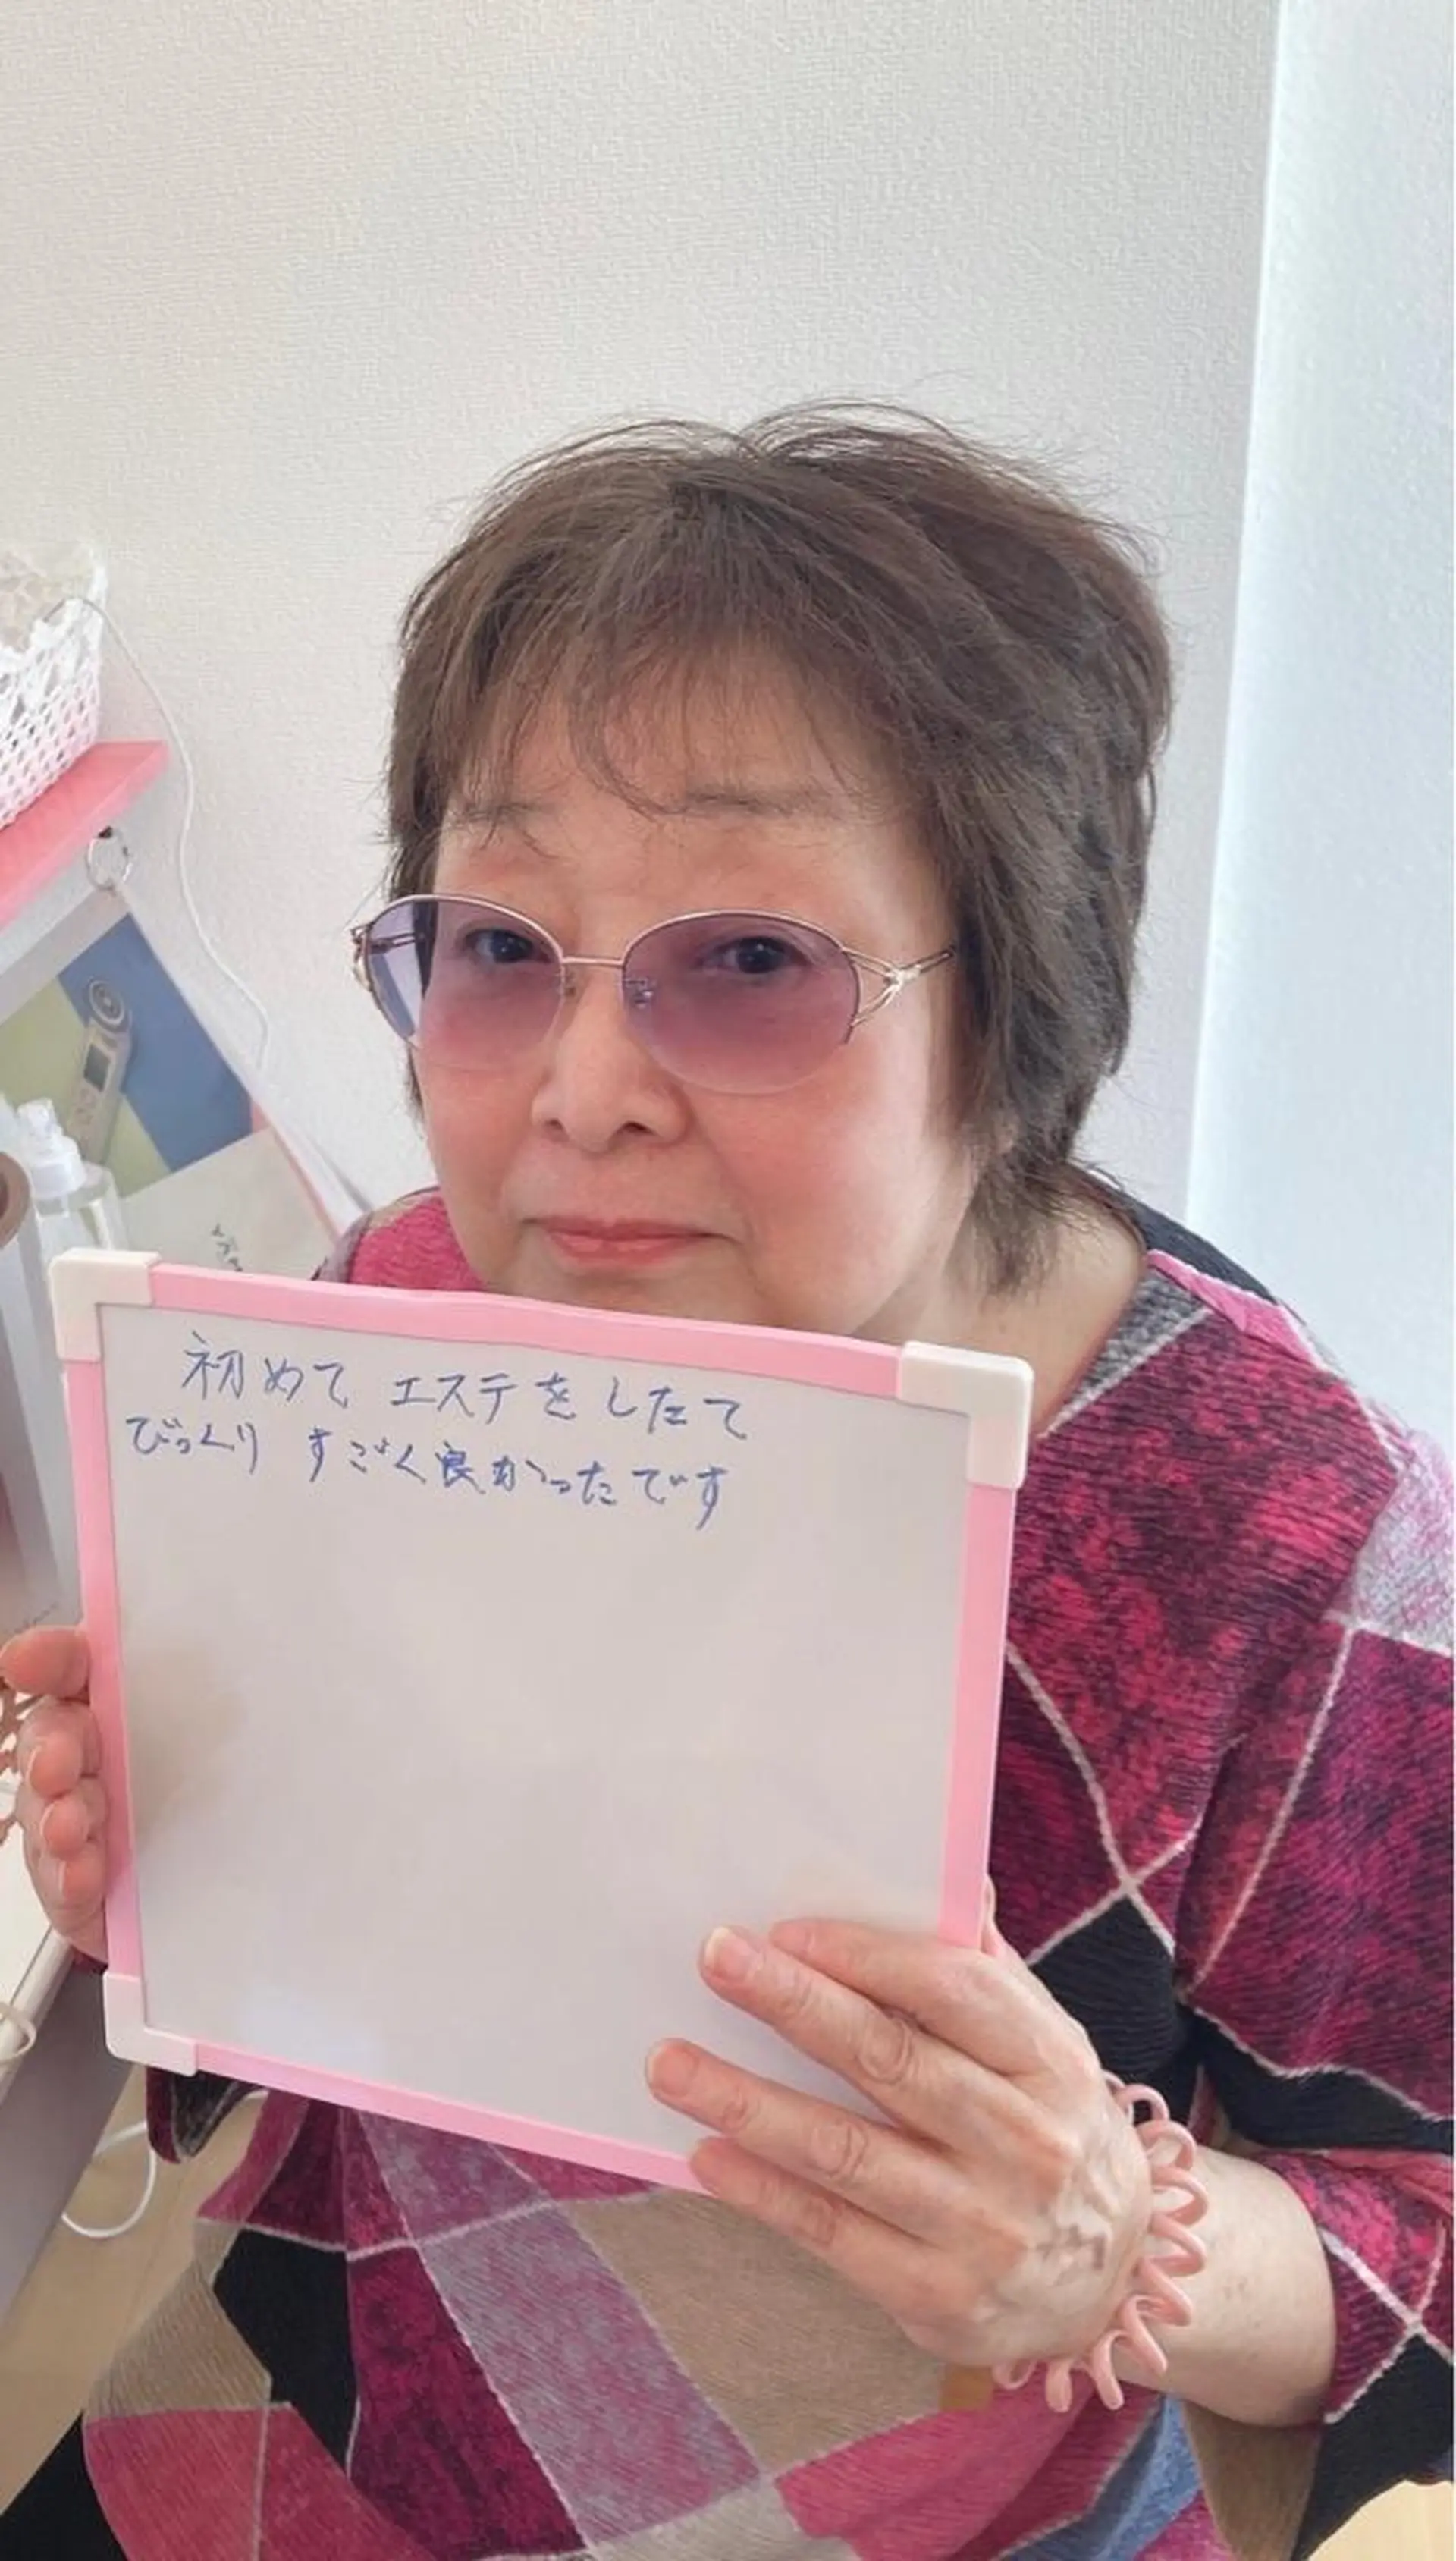 初めて エステをしたて
びっくり すごく良かったです